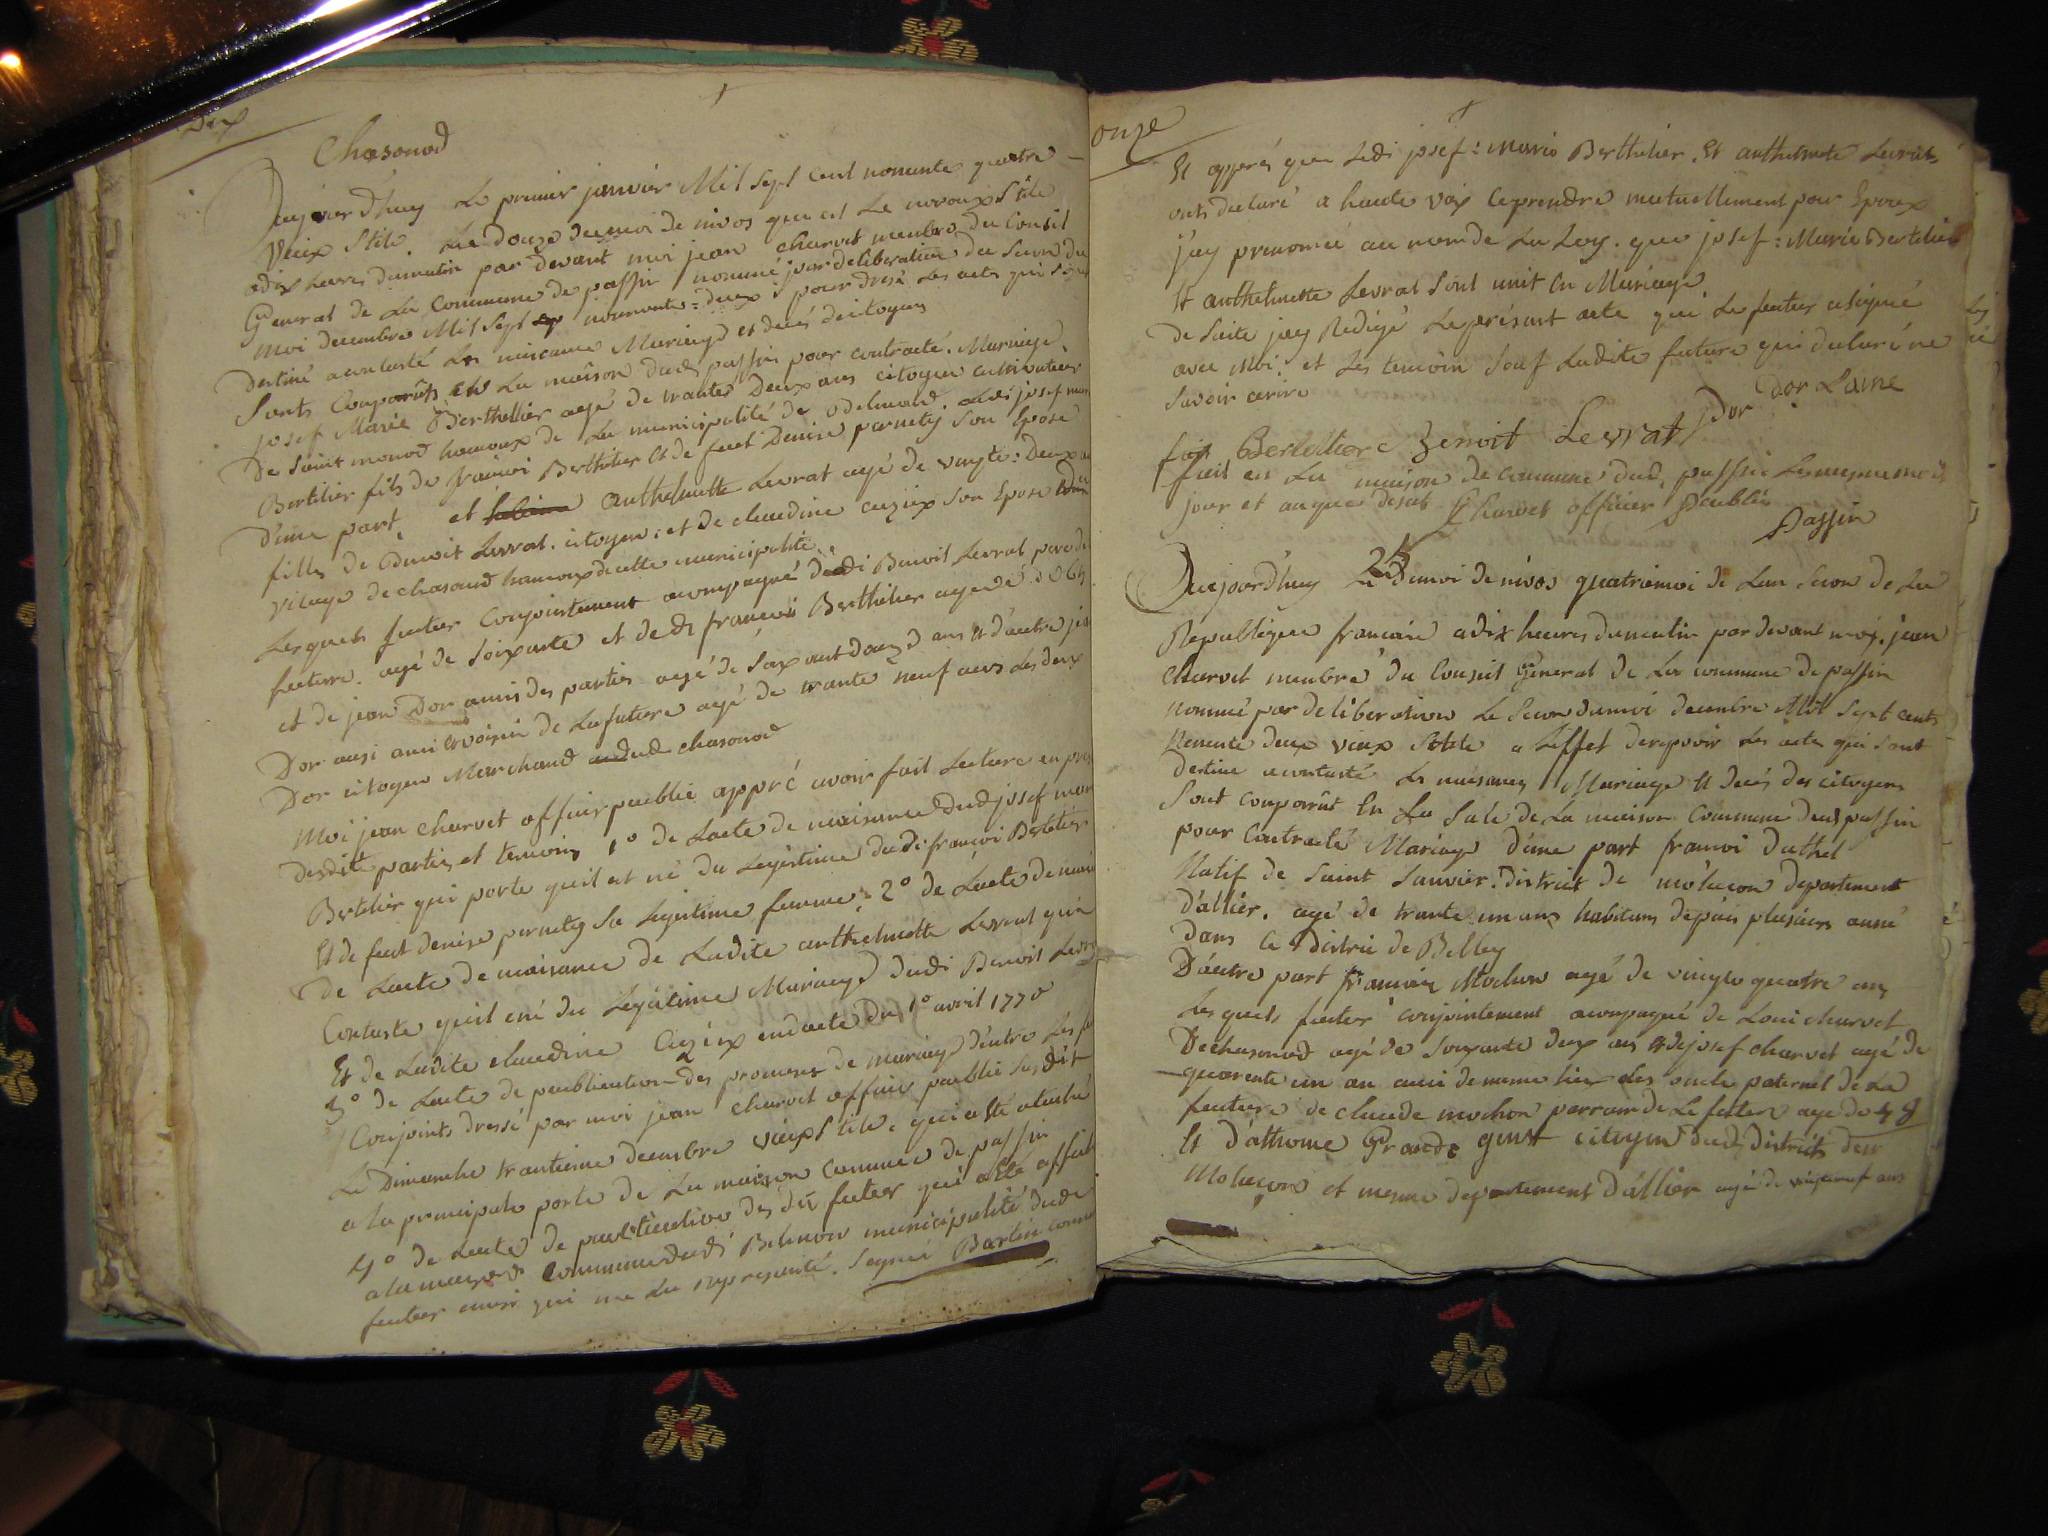 Dix
Chasonod
Aujourdhuy Le premier janvier Mil sept cent nonente quatre
Vieux Stile. Le douze du moi de nivos que est Le nouveau Stile
a dix heures du matin par devant moi jean charvet membre du Conseil
General de La Commune de passin nommé par deliberation du
moi decembre Mil sept nonente = deux pour dresé Les actes qui
destiné a contasté Les naisance Mariage et decés de citoyen
Sont Comparûts en La maison dud passin pour contracté. Mariage,
josef Marie Berthellier agé de trante Deux ans citoyen cultivateur
De Saint monod hamoux de La municipalité de josef
Bertelier fils de francoi Berthelier et de feut Denise parnety Son Epose
D'une part, et anthelmette Levrat agé de vingte : Deux
filles de Benoit Levrat. citoyen : et de claudine cuzieux Son Epose
vilage de chasonod hamoux de cette municipalité.
Lesquels futur Conjointement acompagné dudi Benoit Levrat pere de
future. agé de soixante et de di francoi Berthelier agé de 64
et de jean Dor ami des partiés agé de Soixant douze ans et d'autre
Dor ausi ami et voisin de La future agé de trante neuf ans Les deux
Dor citoyen Marchand dud chasonod
Moi jean charvet officier publié appré avoir fait Lecture en
desdite partie, et temoins 1º de Lacte de naisance dud josef
Bertelier qui porte qu'il est né du Legestime dudi francoi Bertelier
Et de feut denise parnety Sa Legitime femme : 2º de Lacte de
de Lacte de naisance de Ladite anthelmette Levrat qui
Contaste qu'il est né du Legitime Mariage dudi Benoit
Et de Ladite claudine Cuzieux en dacte du 1º avril 1770
3º de Lacte de publication des promesse de mariage d'entre Les
Conjoints dressé par moi jean charvet officier publié Susdit
Le Dimanche trantieme decembre vieux Stile, qui a sté ataché
a la principale porte de La maison Commune de passin
4º de Lacte de publication des dit futur qui a sté affiché
a la maison Commune dudi municipalité dudi
futur ausi qui me La representé. Signié
onze
Et apprés que Ledi josef = Marie Berthelier. Et anthelmete Levrat
onts declaré a haute voix Ceprendre mutuellement pour Epoux
j'ay prenoncé au nom de La Loy. que josef : Marie Bertelier
Et anthelmette Levrat Sont unit En Mariage
De Suite jay Redigé Le présent acte qui Le futur a signé
avec Moi, et Les temoin Souf Ladite future qui declaré ne
Savoir ecrire
Berthelier Benoit Levrat Dor Dor Laine
fait en La maison de commune dud, passin Les meme moi
jour et an que desut Charvet officier Publié
Passin
Aujoordhuy Le 25 du moi de nivos quatriémoi de Lan Secon de La
Republique francaise a dix heures du matin par devant moy. jean
charvet membre du Conseil General de La commune de passin
nommé par deliberation Le Secon du moi decembre Mil Sept cents
Nenente deux vieux Stile a Leffet de recevoir Les actes qui Sont
destine a contasté Les naisances Mariage Et decés des citoyens
Sont comparût En La Sale de La maison Commune dud passin
pour Contracté Mariage d'une part francoi duthel
Natif de Saint Sauvier. District de molucon departement
D'allier. agé de trante un ans habitans depuis plusieurs anné
dans Le District de Belley
D'autre part francoise Mochon agé de vingte quatre ans
Lesquels futur conjointement acompagné de Loui charvet
De chasonod agé de Soixante deux ans Et de josef charvet agé de
quarente un an ausi de meme Lieu Les oncle paternel de La
future de claude mochon parrain de La future age de 48
Et d'athome Grande citoyen dud district de
Molucon et mesme departement D'allier agé de vingtneuf ans